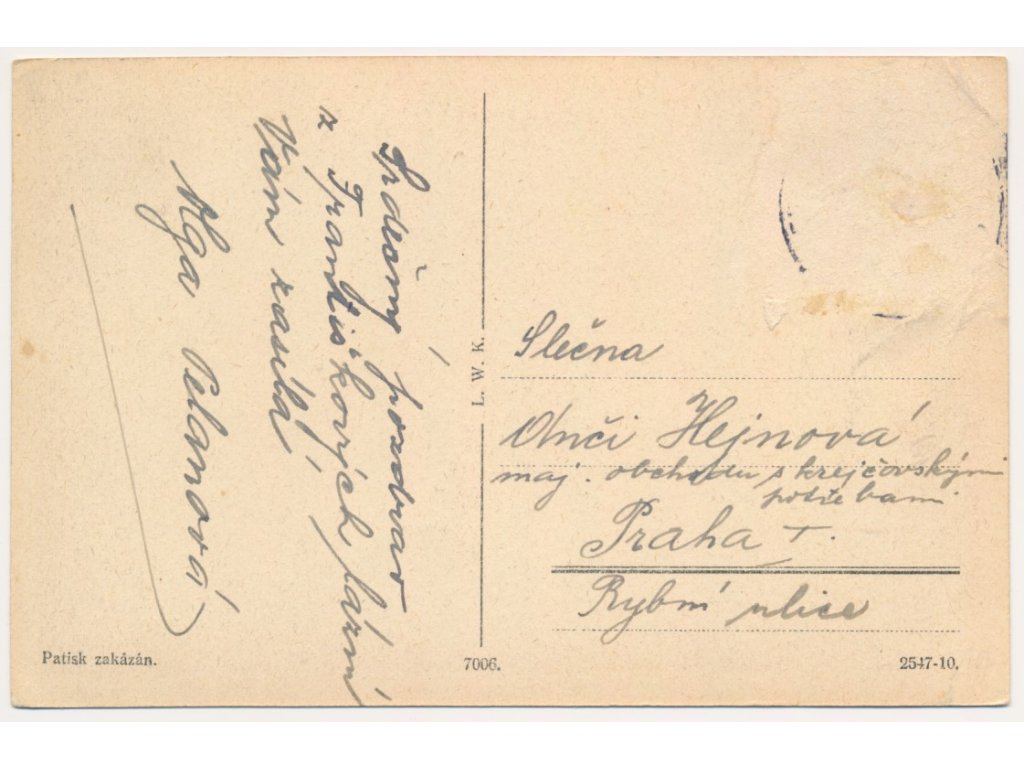 Srdečný pozdrav
z Františkových lázní
Vám zasílá
Olga Pelanová
L. W. K.
Slečna
Anči Hejnová
maj. obchodu s krejčovskými
potřebami
Praha I.
Rybní ulice
Patisk zakázán.
7006.
2547-10.